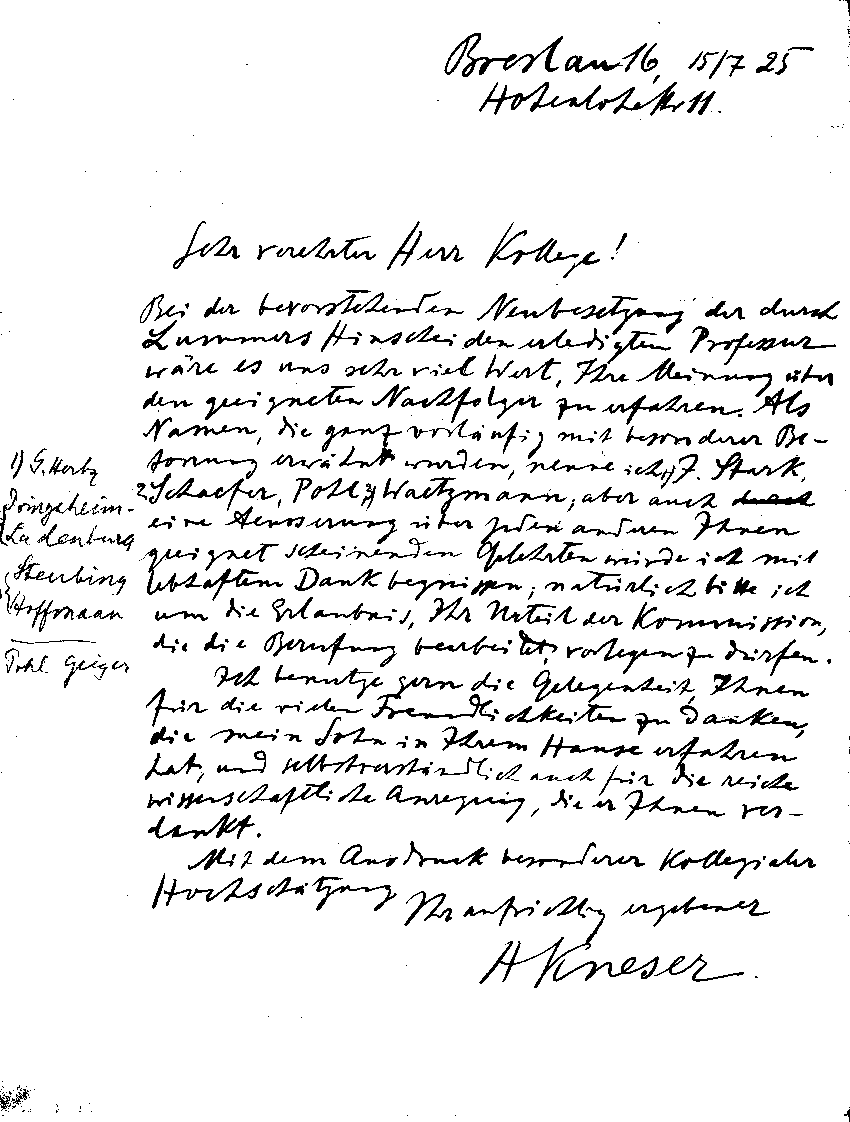 Breslau 16, 15/7 25
Hohenlohestr 11.
Sehr verehrter Herr Kollege!
Bei der bevorstehenden Neubesetzung der durch
Lummers Hinscheiden erledigten Professur
wäre es uns sehr viel Wert, Ihre Meinung über
den geeigneten Nachfolger zu erfahren. Als
Namen, die ganz vorläufig mit besonderer Be-
tonung erwähnt wurden, nenne ich J. Stark,
Schaefer, Pohl, Waetzmann; aber auch durch
eine Aeusserung über jeden anderen Ihnen
geeignet scheinenden Gelehrten würde ich mit
lebhaftem Dank begrüssen; natürlich bitte ich
um die Erlaubnis, Ihr Urteil der Kommission,
die die Berufung bearbeitet, vorlegen zu dürfen.
Ich benutze gern die Gelegenheit, Ihnen
für die vielen Freundlichkeiten zu danken,
die mein Sohn in Ihrem Hause erfahren
hat, und selbstverständlich auch für die reiche
wissenschaftliche Anregung, die er Ihnen ver-
dankt.
Mit dem Ausdruck besonderer Kollegialer
Hochschätzung
Ihr aufrichtig ergebener
A Kneser.
1) G. Hertz
Pringsheim-
Ladenburg
Steubing
Hoffmann
Pohl Geiger